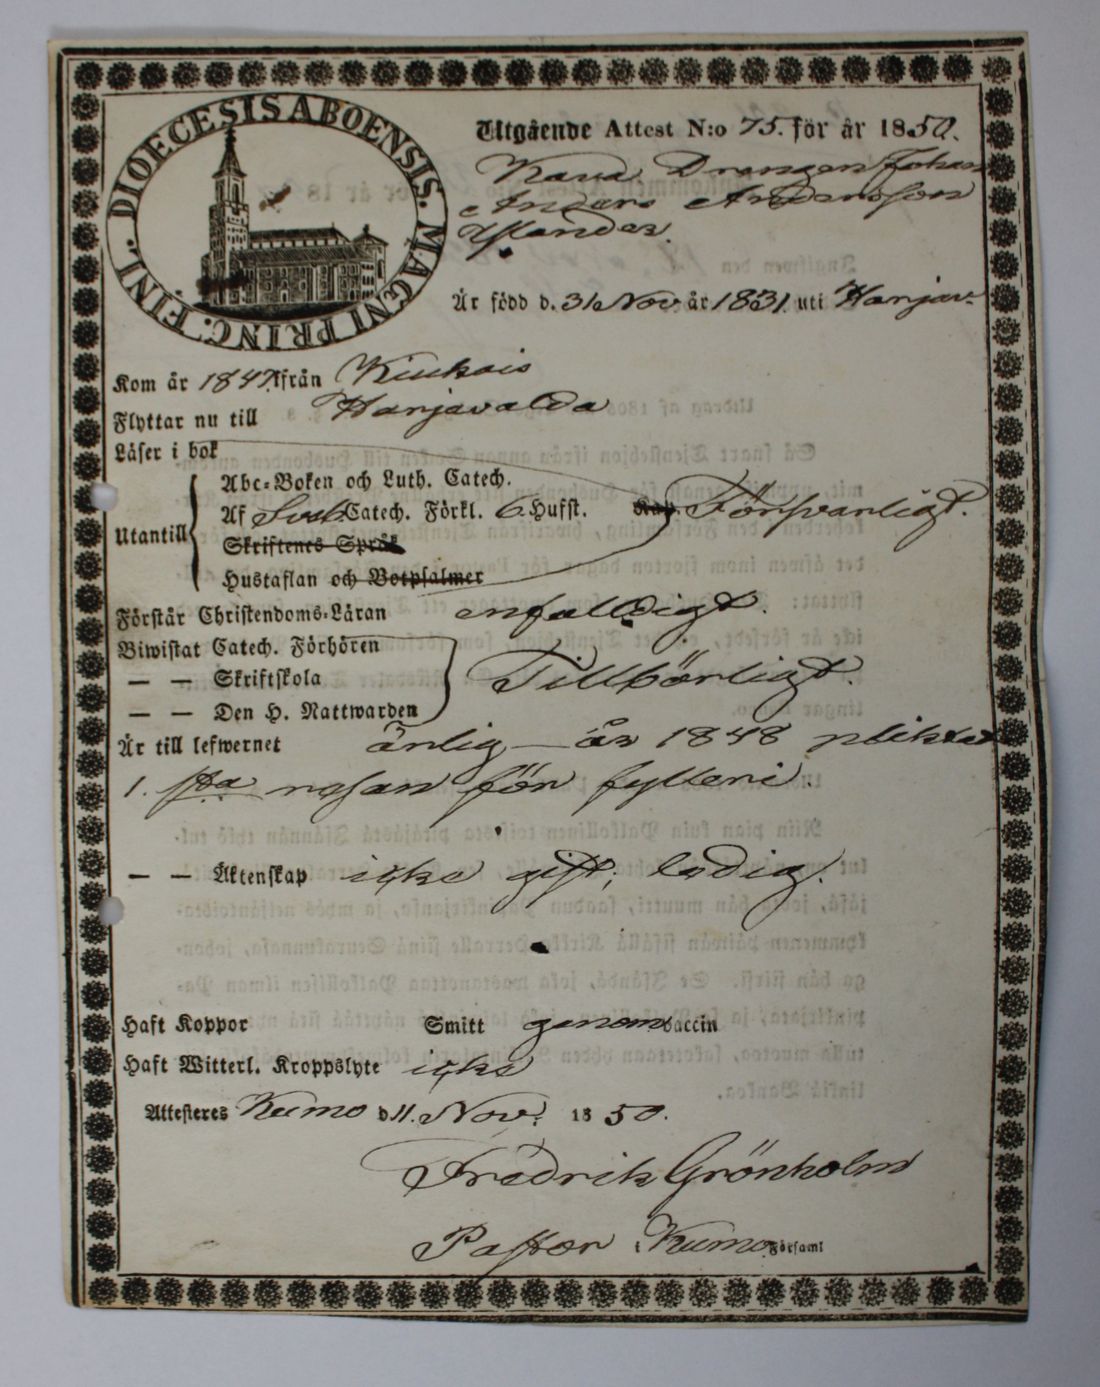 DIOECESIS ABOENSIS. MAGNI PRINC. FINL.
Utgående Attest N:o 75. för år 1850.
Drengen Johan
Anders Andersson
Är född d. 31 Nov år 1831 uti Harjav.
Kom år 1847 ifrån Kiukais
Flyttar nu till Harjavalda
Läser i bok
Utantill
Abc-Boken och Luth. Catech.
Af Sveb. Catech. Förkl. 6 Hufst. Försvarligt.
Skriftenes Språk
Hustaflan och Botpsalmer
Förstår Christendoms-Läran enfaldigt.
Biwistat Catech. Förhören
— — Skriftskola Tillbörligt.
— — Den H. Nattwarden
Är till lefwernet ärlig — år 1848 pliktat
1. sta resan för fylleri.
— — Äktenskap icke gift; ledig.
Haft Koppor Smitt genom vaccin
Haft Witterl. Kroppslyte icke
Attesteres Kumo d. 11. Nov. 1850.
Fredrik Grönholm
Pastor i Kumo Församl